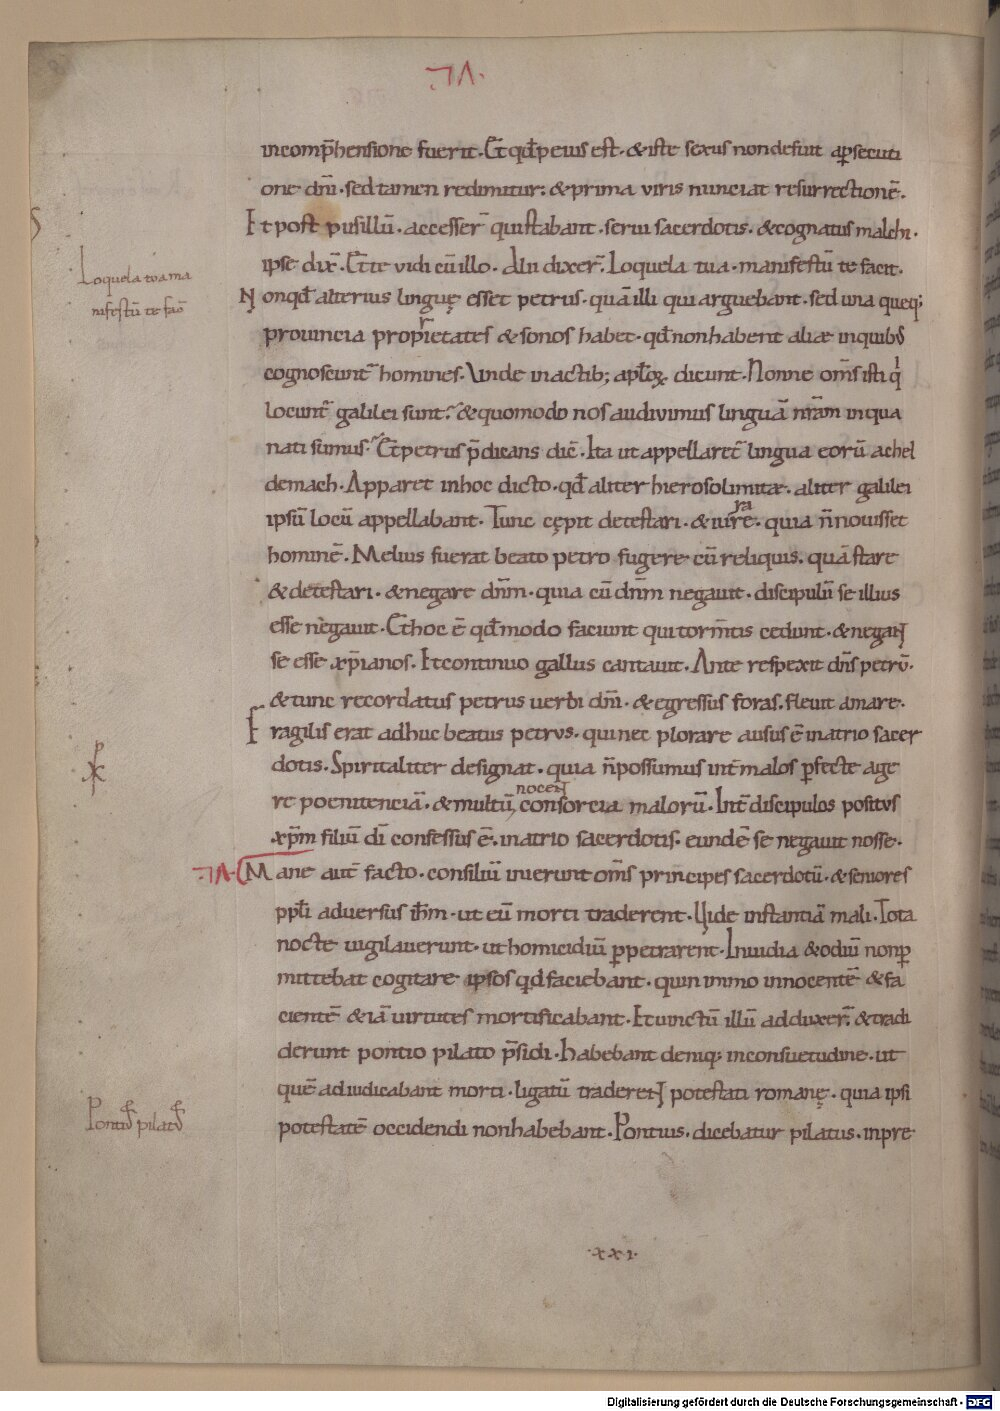 incomp̄hensione fuerit. Et qđ peius est. & iste sexus non defuit aꝑsecuti
one dn̄i. sed tamen redimitur: & prima viris nunciat resurrectionē.
Et post pusillū. accesser̄ qui stabant. serui sacerdotis. & cognatus malchi.
ipse dix̄. Ego te vidi cū illo. Alii dixer̄. Loquela tua. manifestū te facit.
Loquela tua ma
nifestū te faċ
Non qđ alterius linguę esset petrus. quā illi qui arguebant. sed una queq;
prouincia proprietates & sonos habet. qđ non habent aliae in quibꝰ
cognoscunt̄ homines. Vnde in actib; aplōꝝ dicunt. Nonne om̄s isti q̇
locunt̄ galilei sunt? & quomodo nos audivimus linguā nr̄am in qua
nati sumus? Et petrus p̄dicans dic̄. Ita ut appellaret̄ lingua eorū achel
demach. Apparet in hoc dicto. qđ aliter hierosolimitae. aliter galilei
ipsū locū appellabant. Tunc cępit detestari. & iurare. quia n̄ nouisset
hominē. Melius fuerat beato petro fugere cū reliquis. quā stare
& detestari. & negare dn̄m. quia cū dn̄m negauit. discipulū se illius
esse negauit. Et hoc ē qđ modo faciunt qui torm̄tis cedunt. & negant
se esse xp̄ianos. Et continuo gallus cantauit. Ante respexit dn̄s petrū.
& tunc recordatus petrus uerbi dn̄i. & egressus foras. fleuit amare.
Fragilis erat adhuc beatus petrus. qui nec plorare ausus ē in atrio sacer
dotis. Spiritaliter designat. quia n̄ possumus int̄ malos ꝑfecte age
re poenitenciā. & multū nocent consorcia malorū. Int̄ discipulos positus
xp̄m filiū dī confessus ē. in atrio sacerdotis. eundē se negauit nosse.
Mane aut̄ facto. consiliū inierunt om̄s principes sacerdotū. & seniores
ppl̄i aduersus ih̄m. ut eū morti traderent. Vide instantiā mali. Tota
nocte uigilauerunt. ut homicidiū ꝑpetrarent. Inuidia & odiū non ꝑ
mittebat cogitare ipsos qđ faciebant. quin immo innocentē & fa
cientē & iā uirtutes mortificabant. Et uinctū illū adduxer̄. & tradi
derunt pontio pilato p̄sidi. Habebant deniq; in consuetudine. ut
quē adiudicabant morti. ligatū traderent potestati romanę. quia ipsi
Pontiꝰ pilatꝰ
potestatē occidendi non habebant. Pontius. dicebatur pilatus. in pre
.xxi.
Digitalisierung gefördert durch die Deutsche Forschungsgemeinschaft - DFG